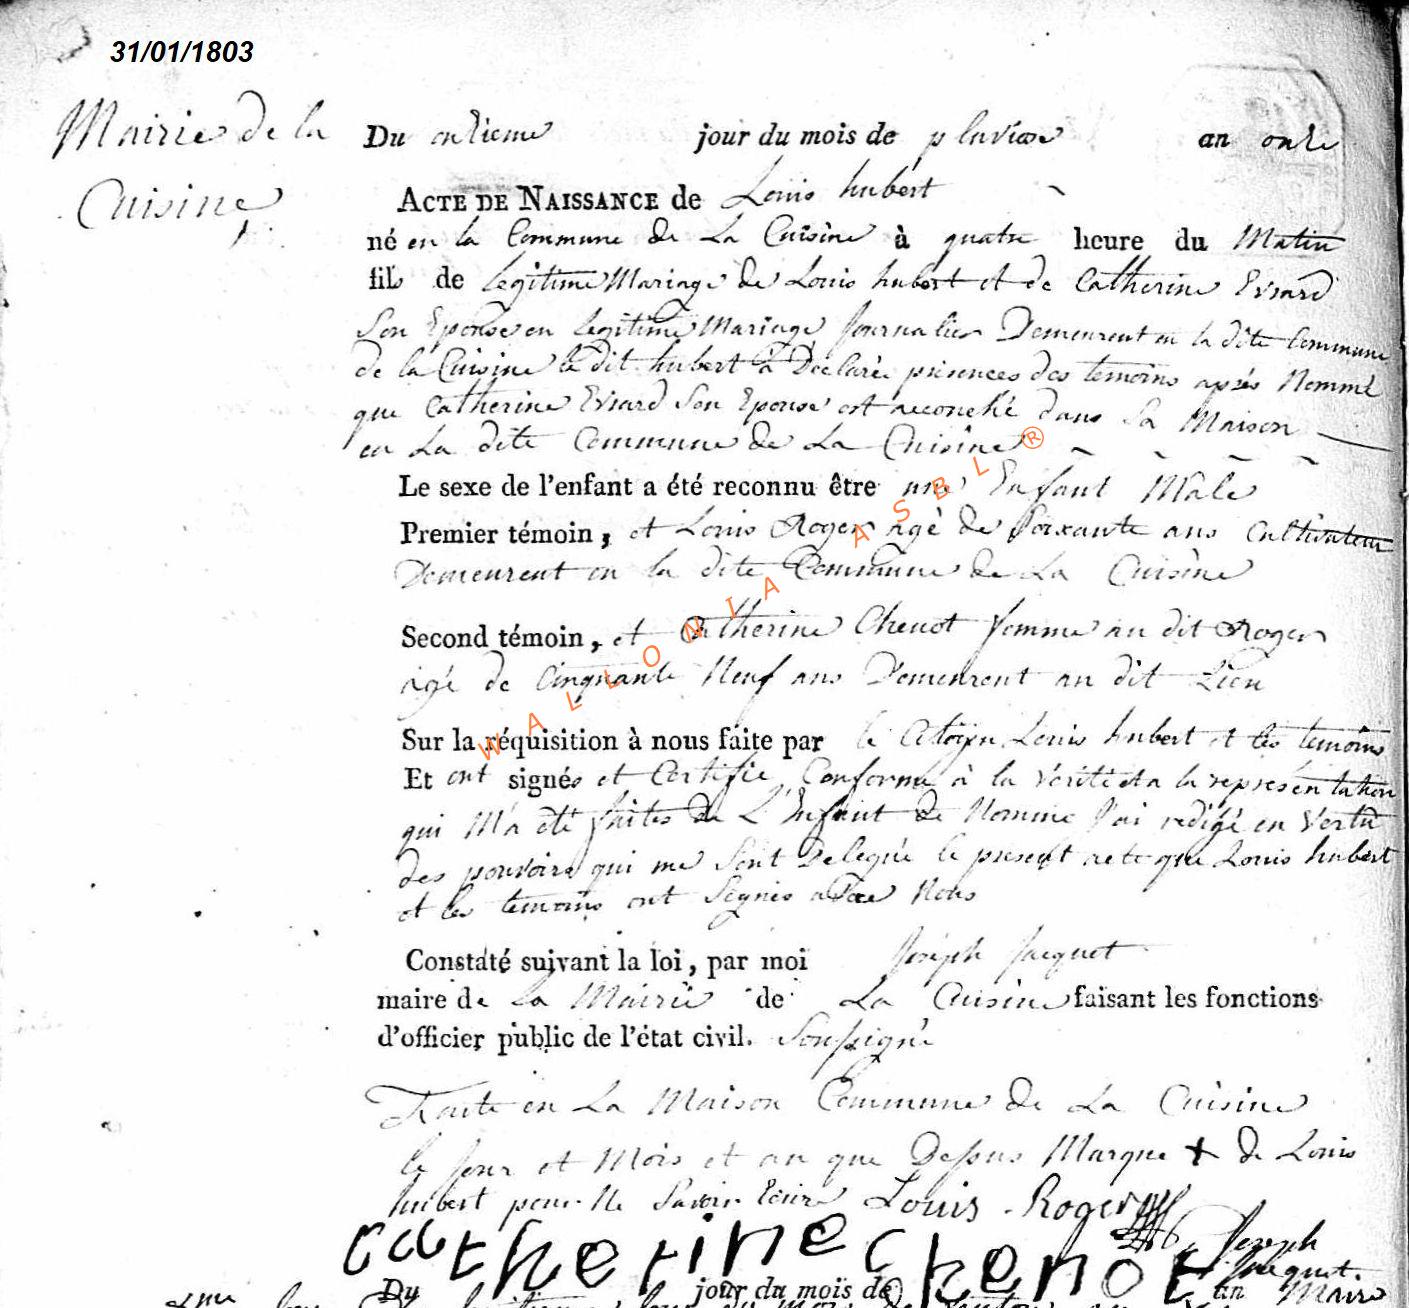 31/01/1803
Mairie de la
Cuisine
Du onzieme jour du mois de pluviose an onze
ACTE DE NAISSANCE de Louis hubert
né en la Commune de La Cuisine à quatre heure du Matin
fils de Legitime Mariage de Louis hubert et de Catherine Evrard
Son Epouse en legitime Mariage Journalier Demeurent en la dite Commune
de la Cuisine le dit hubert à Déclarée présences des temoins après Nommé
que Catherine Evrard Son Epouse est accouché dans Sa Maison
en La dite Commune de La Cuisine
Le sexe de l'enfant a été reconnu être une Enfant Male
Premier témoin, et Louis Roger agé de Soixante ans Cultivateur
Demeurent en la dite Commune de La Cuisine
Second témoin, et Catherine Chenot femme au dit Roger
agé de Cinquante Neuf ans Demeurent au dit Lieu
Sur la réquisition à nous faite par le Citoyen Louis hubert et les temoins
Et ont signés et Certifie Conforme à la Vérité et a la representation
qui M'a été faites de L'Enfant de Nomme J'ai redigé en Vertu
des pouvoirs qui me Sont Delegué le present acte que Louis hubert
et les temoins ont Signés avec Nous
Constaté suivant la loi, par moi Joseph Jacquet
maire de la Mairie de La Cuisine faisant les fonctions
d'officier public de l'état civil. Soussigné
Faite en La Maison Commune de La Cuisine
le Jour et Mois et an que Dessus Marque + de Louis
hubert pour Ne Savoir Ecrire Louis Roger
Joseph
catherine chenot Jacquet
Du jour du mois de an Maire
WALLONIA ASBL ®